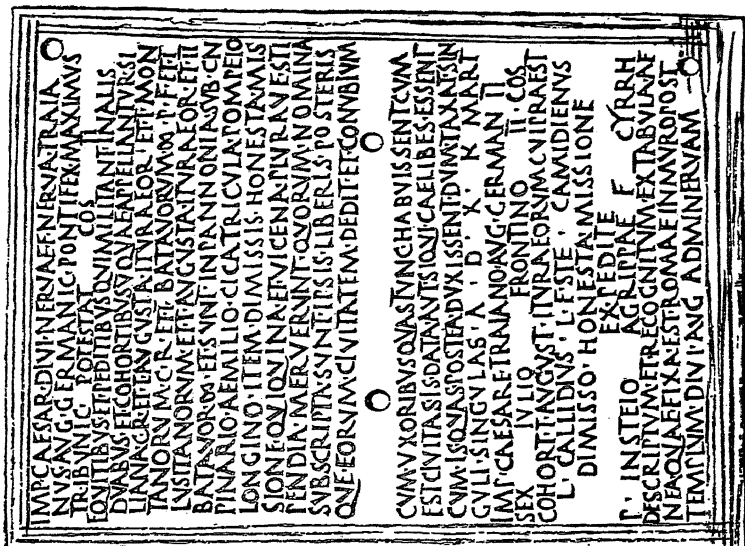 IMP·CAESAR·DIVI·NERVAE·F·NERVA·TRAIA
NVS·AVG·GERMANIC·PONTIFEX·MAXIMVS
TRIBVNIC· POTESTAT COS II
EQVITIBVS·ET·PEDITIBVS·QVI·MILITANT·IN·ALIS
DVABVS·ET·COHORTIBVS·V·QVAE·APPELLANTVR·SI
LIANA·C·R·ET·I·AVGVSTA·ITVRAEOR·ET·I·MON
TANORVM·C·R·ET·I·BATAVORVM·∞·P·F·ET·I
LVSITANORVM·ET·I·AVGVSTA·ITVRAEOR·ET·II
BATAVOR·∞·ET·SVNT·IN·PANNONIA·SVB·CN
PINARIO·AEMILIO·CICATRICVLA·POMPEIO
LONGINO·ITEM·DIMISSIS·HONESTA·MIS
SIONE·QVI·QVINA·ET·VICENA·PLVRAVE·STI
PENDIA·MERVERVNT·QVORVM·NOMINA
SVBSCRIPTA·SVNT·IPSIS·LIBERIS·POSTERIS
QVE·EORVM·CIVITATEM·DEDIT·ET·CONVBIVM
CVM·VXORIBVS·QVAS·TVNC·HABVISSENT·CVM
EST·CIVITAS·IIS·DATA·AVT·SI·QVI·CAELIBES·ESSENT
CVM·IIS·QVAS·POSTEA·DVXISSENT·DVMTAXAT·SIN
GVLI·SINGVLAS·A·D·X·K·MART
IMP·CAESARE·TRAIANO·AVG·GERMAN II
SEX IVLIO FRONTINO II COS
COHORT·I·AVGVST·ITVRAEORVM·CVI·PRAEST
L·CALLIDIVS·L·F·STE·CAMIDIENVS
DIMISSO·HONESTA·MISSIONE
EX PEDITE
P·INSTEIO AGRIPPAE F CYRRH
DESCRIPTVM·ET·RECOGNITVM·EX·TABVLA·AE
NEA·QVAE·FIXA·EST·ROMAE·IN·MVRO·POST
TEMPLVM·DIVI·AVG AD·MINERVAM